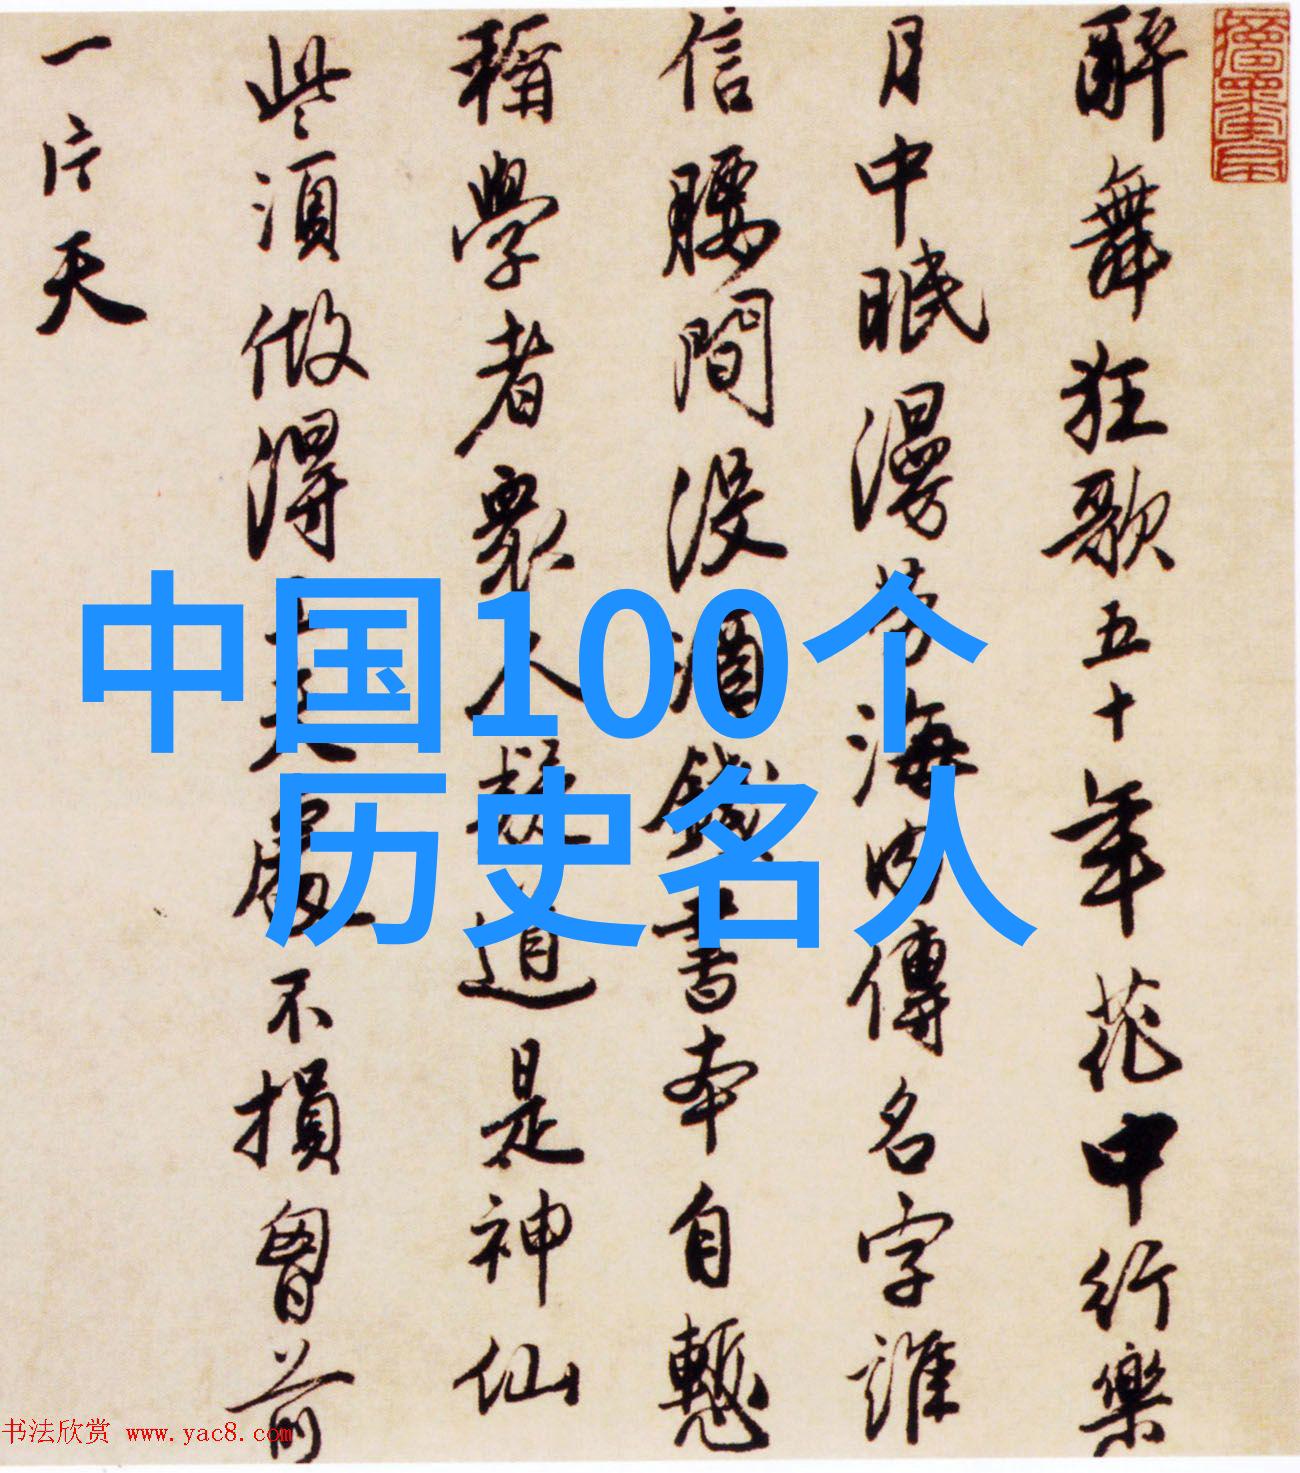 醉舞狂歌五十年花中行樂
月中眠漫勞海內傳名字誰
信腰間沒酒錢書本自慙
稱學者衆人疑道是神仙
些須做得工夫處不損胷前
一片天
中国100个
历史名人
书法欣赏 www.yac8.com